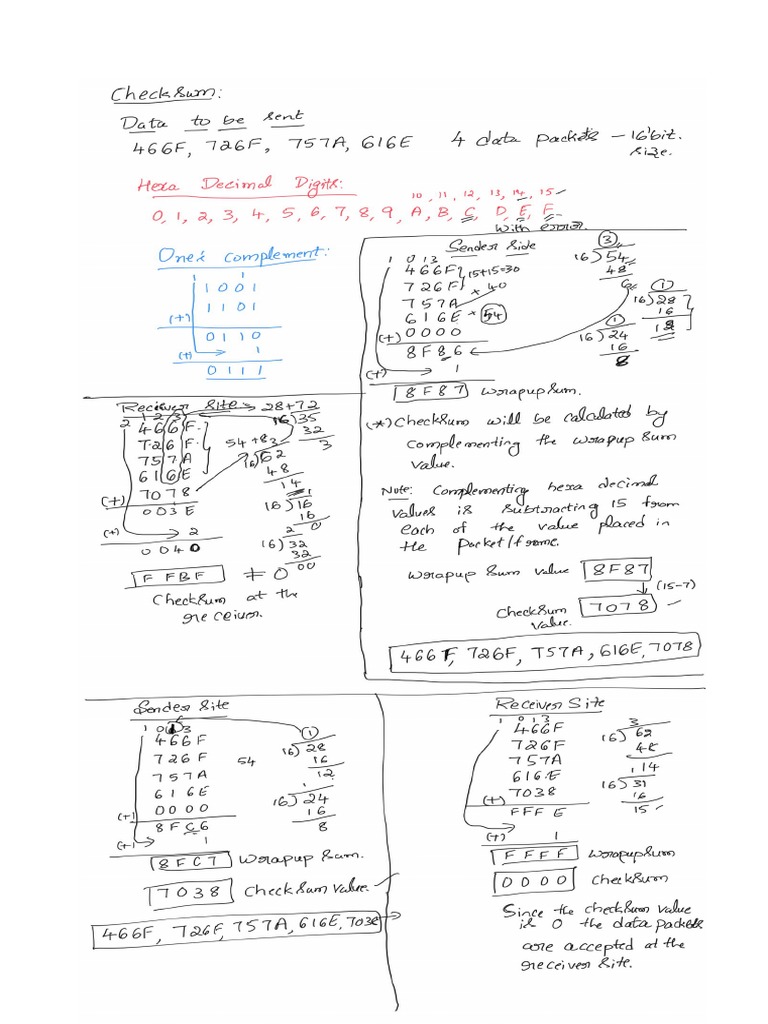 Checksum:
Data to be sent
466F, 726F, 757A, 616E 4 data packets - 16 bit size.
Hexa Decimal Digits:
10, 11, 12, 13, 14, 15
0, 1, 2, 3, 4, 5, 6, 7, 8, 9, A, B, C, D, E, F
One's complement:
1 1
1 0 0 1
1 1 0 1
(+)
0 1 1 0
(+) 1
0 1 1 1
with error.
Sender Side
1 0 1 3
466F
726F
757A
616E
(+) 0000
8F86
(+) 1
8F87 Wrapup Sum.
15+15=30
+ 40
+ 54
3
16)54
48
6
1
16)28
16
12
1
16)24
16
8
(*) Checksum will be calculated by
complementing the wrapup sum
value.
Note: Complementing hexa decimal
values is subtracting 15 from
each of the value placed in
the packet/frame.
Wrapup Sum value 8F87
(15-7)
Checksum 7078
value.
466F, 726F, 757A, 616E, 7078
Receiver Site
2 1 2 3
466F
726F
757A
616E
(+) 7078
003E
(+) 2
0040
FFBF ≠ 0
Checksum at the
receiver.
28+72
16)35
32
3
54+8
16)62
48
14
1
16)16
16
0
2
16)32
32
00
Sender Site
1 0 1 3
466F
726F 54
757A
616E
(+) 0000
8FC6
(+) 1
8FC7 Wrapup Sum.
7038 Checksum Value
466F, 726F, 757A, 616E, 7038
1
16)28
16
12
1
16)24
16
8
Receiver Site
1 0 1 3
466F
726F
757A
616E
(+) 7038
FFFE
(+) 1
FFFF Wrapup Sum
0000 Checksum
3
16)62
48
14
1
16)31
16
15
Since the checksum value
is 0 the data packets
are accepted at the
receiver site.